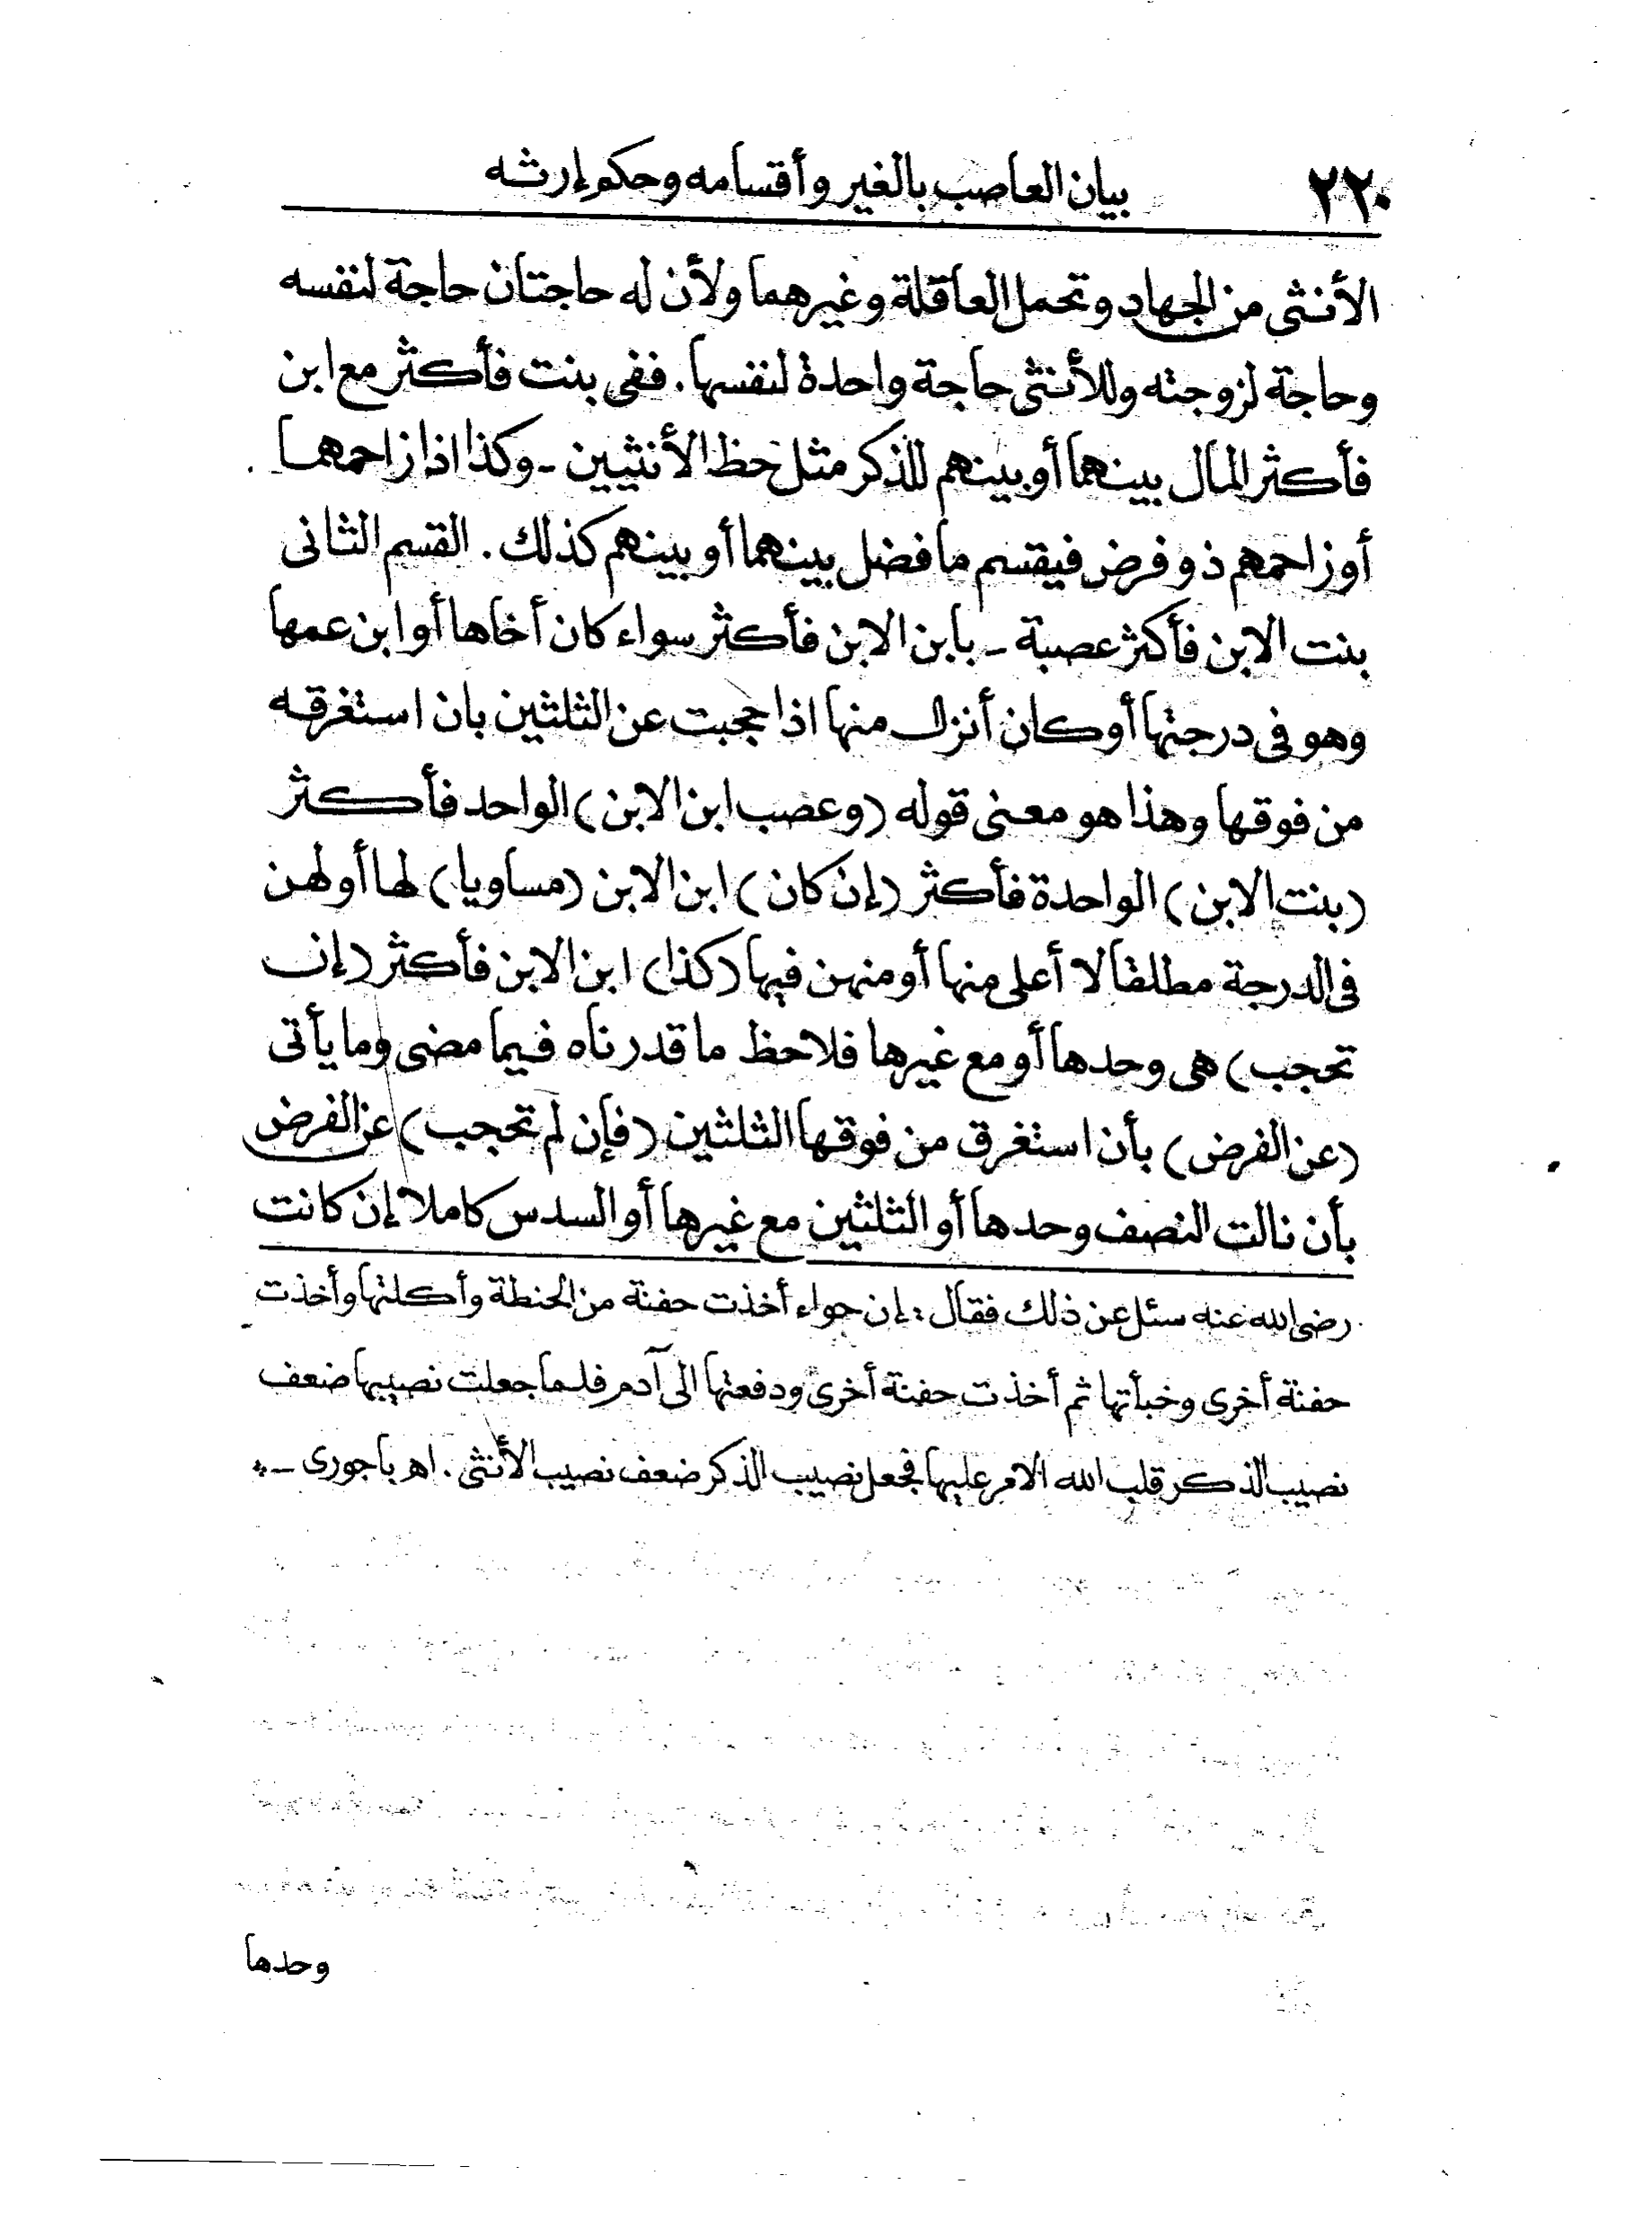 ٢٢٠ بيان العاصب بالغير وأقسامه وحكم إرثه
الأنثى من الجهاد وتحمل العاقلة وغيرهما ولأن له حاجتان حاجة لنفسه
وحاجة لزوجته وللأنثى حاجة واحدة لنفسها. ففى بنت فأكثر مع ابن
فأكثر المال بينهما أو بينهم للذكر مثل حظ الأنثيين - وكذا اذا زاحمهما
أو زاحمهم ذو فرض فيقسم ما فضل بينهما أو بينهم كذلك. القسم الثانى
بنت الابن فأكثر عصبة - بابن الابن فأكثر سواء كان أخاها أو ابن عمها
وهو فى درجتها أو كان أنزل منها اذا حجبت عن الثلثين بان استغرقه
من فوقها وهذا هو معنى قوله (وعصب ابن الابن) الواحد فأكثر
(بنت الابن) الواحدة فأكثر (إن كان) ابن الابن (مساويا) لها أو لهن
فى الدرجة مطلقا لا أعلى منها أو منهن فيها (كذا) ابن الابن فأكثر (إن
تحجب) هى وحدها أو مع غيرها فلاحظ ما قدرناه فيما مضى وما يأتى
(عن الفرض) بأن استغرق من فوقها الثلثين (فإن لم تحجب) عن الفرض
بأن نالت النصف وحدها أو الثلثين مع غيرها أو السدس كاملا إن كانت
رضى الله عنه سئل عن ذلك فقال: إن حواء أخذت حفنة من الحنطة وأكلتها وأخذت
حفنة أخرى وخبأتها ثم أخذت حفنة أخرى ودفعتها الى آدم فلما جعلت نصيبها ضعف
نصيب الذكر قلب الله الامر عليها فجعل نصيب الذكر ضعف نصيب الأنثى. اهـ باجورى -
وحدها